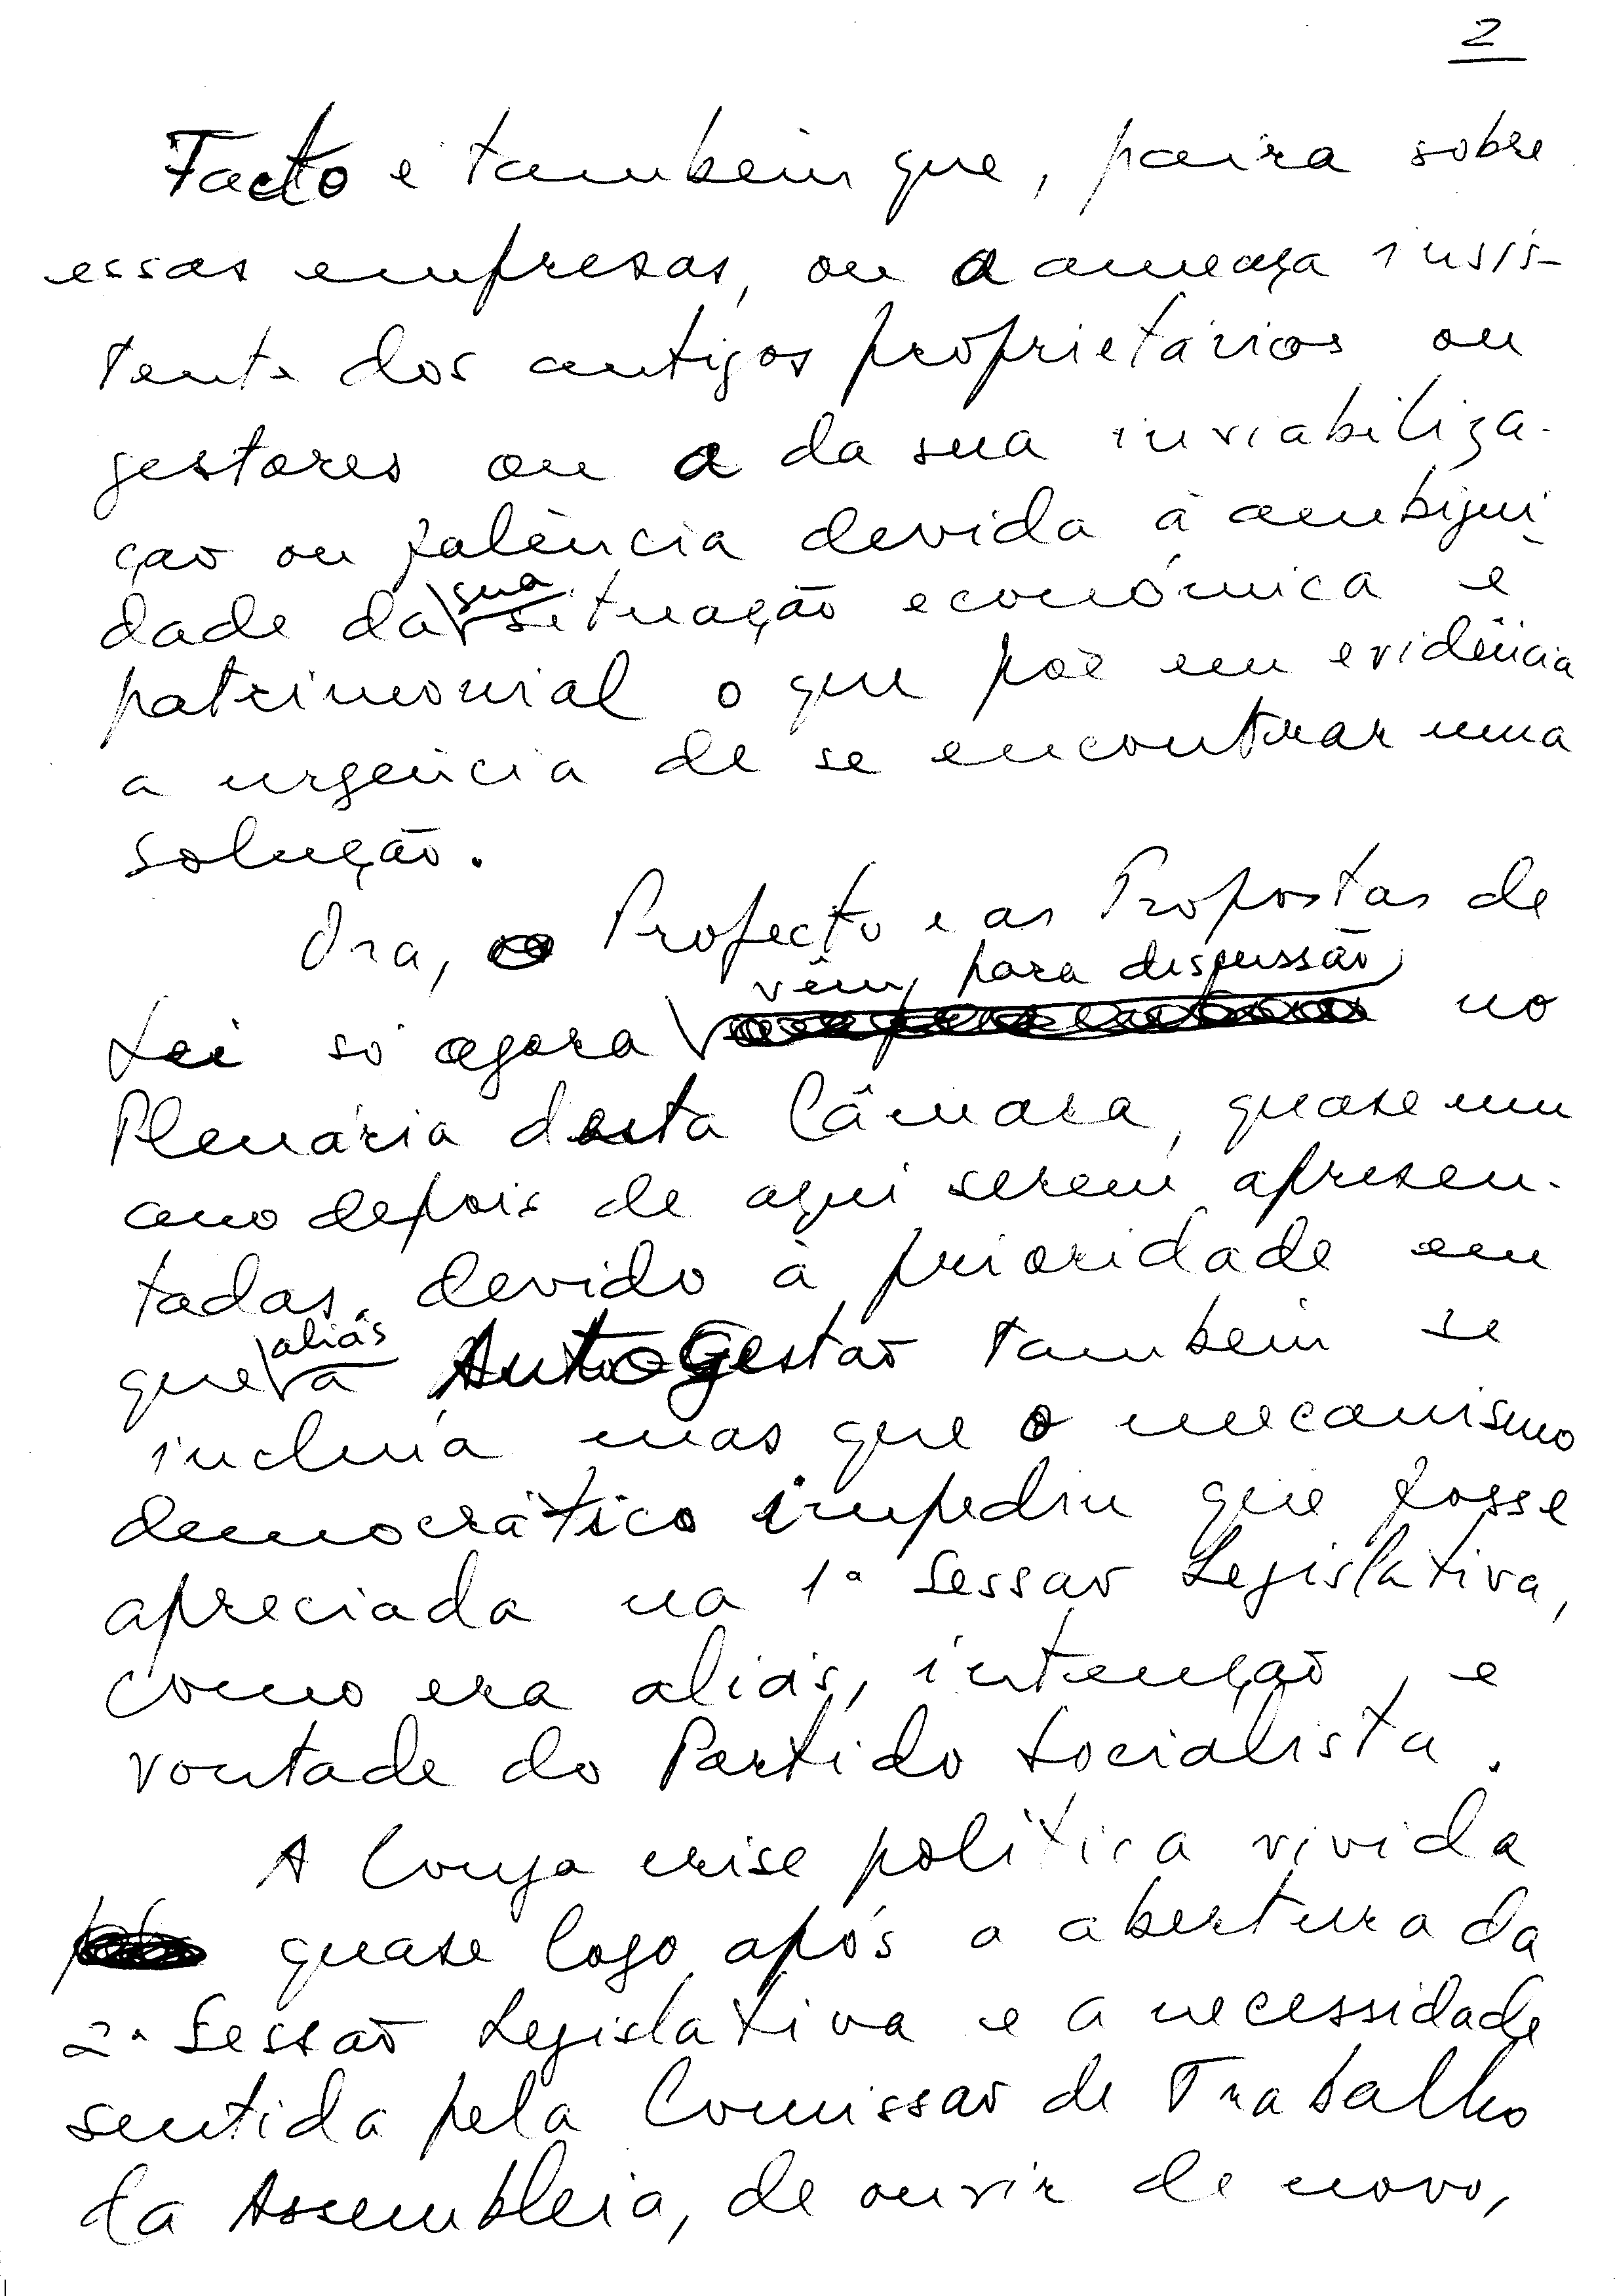 2
Facto é também que, paira sobre
essas empresas, ou a ameaça insis-
tente dos antigos proprietários ou
gestores ou a da sua inviabiliza-
ção ou falência devida à ambigui-
dade da sua situação económica e
patrimonial o que põe em evidência
a urgência de se encontrar uma
solução.
Ora, o Projecto e as Propostas de
vêm, para discussão
Lei só agora no
Plenária desta Câmara, quase um
ano depois de aqui serem apresen-
tadas, devido à prioridade em
que aliás a AutoGestão também se
incluía mas que o mecanismo
democrático impediu que fosse
apreciada na 1ª Sessão Legislativa,
como era aliás, intenção, e
vontade do Partido Socialista.
A longa crise política vivida
quase logo após a abertura da
2ª Sessão Legislativa e a necessidade
sentida pela Comissão de Trabalho
da Assembleia, de ouvir de novo,